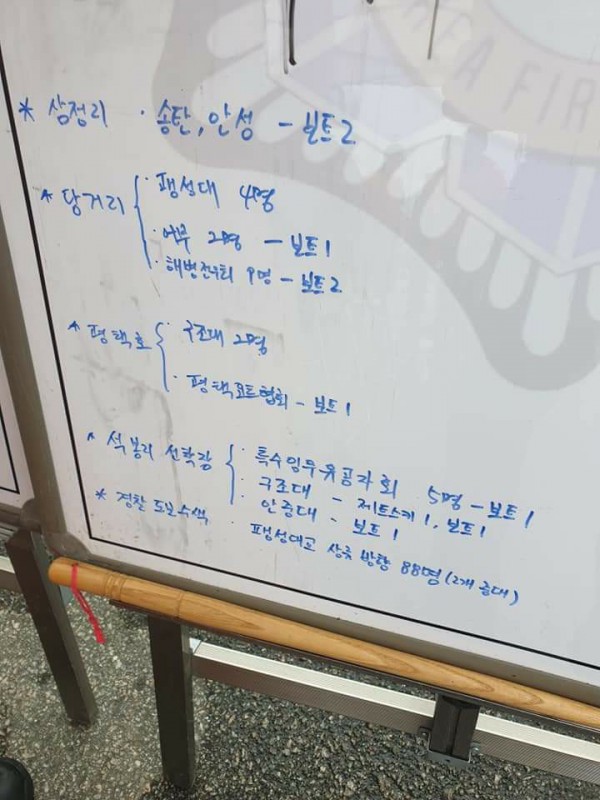 FIR
* 삼정리 · 송탄, 안성 - 보트2
* 당거리 · 팽성대 4명
· 어부 2명 - 보트1
· 해병전우회 9명 - 보트2
* 평택호 · 구조대 2명
· 평택요트협회 - 보트1
* 석봉리 선착장 · 특수임무유공자회 5명 - 보트1
· 구조대 - 제트스키1, 보트1
· 안중대 - 보트1
* 경찰 도보수색 · 팽성대교 상류 방향 88명 (2개 중대)